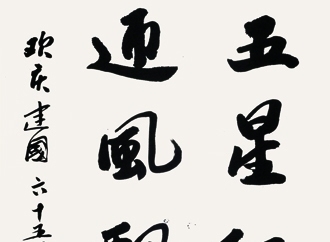 五星
迎風
欢庆建國六十五